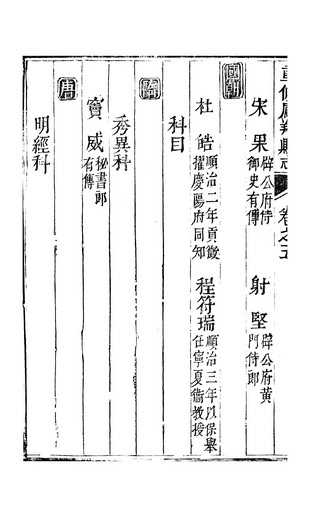 重修鳳翔縣志 卷之五
宋果 辟公府侍御史有傳 射堅 辟公府黃門侍郎
國朝
杜皓 順治二年貢徵擢慶陽府同知 程符瑞 順治三年以保舉任寧夏衞教授
科目
隋
秀異科
竇威 秘書郎有傳
唐
明經科